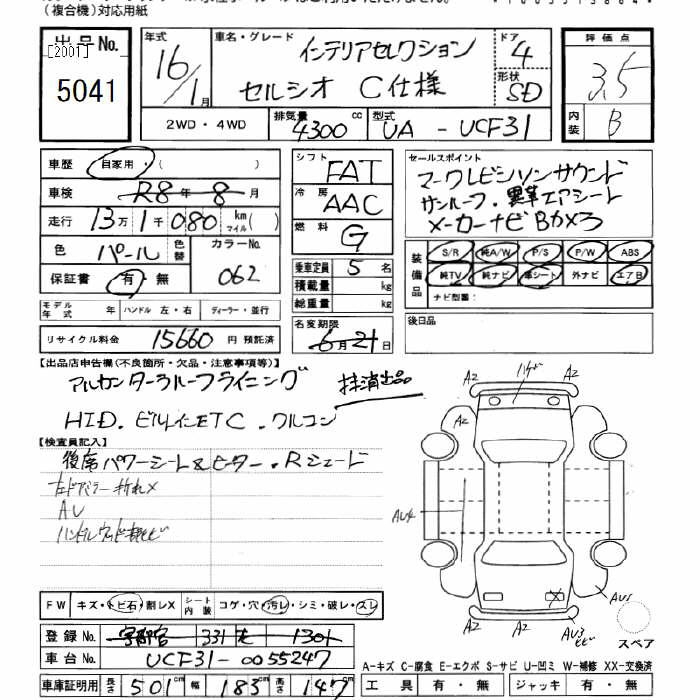 (複合機)対応用紙
出品No. 年式 車名・グレード インテリアセレクション ドア 4 評価点
[2001] 16/1月 セルシオ C仕様 形状 SD 3.5
5041 2WD・4WD 排気量 4300 cc 型式 UA - UCF31 内装 B
車歴 自家用・( ) シフト FAT セールスポイント
車検 R8年 8月 冷房 AAC マークレビンソンサウンド
走行 13万1千080 km マイル( ) 燃料 G サンルーフ・黒革エアシート
メーカーナビBカメラ
色 パール 色替 カラーNo. 062 乗車定員 5名 装備品 S/R 純A/W P/S P/W ABS
保証書 有・無 積載量 kg 純TV 純ナビ 革シート 外ナビ エアB
総重量 kg ナビ型番:
モデル年式 年 ハンドル 左・右 ディーラー・並行 名変期限 6月21日 後日品
リサイクル料金 15660円 預託済
【出品店申告欄(不良箇所・欠品・注意事項等)】
アルカンターラルーフライニング 抹消出品
HID.ビルトインETC.クルコン
【検査員記入】
後席パワーシート&ヒーター.Rシェード
左ドアミラー折れ×
AU
A2 A2
A2 A2
AU4
AU5
AU3
スペア
FW キズ・トビ石・割レX シート内装 コゲ・穴・汚レ・シミ・破レ・スレ
登録No. 宇都宮 331 1301
車台No. UCF31-0055247
A-キズ C-腐食 E-エクボ S-サビ U-凹ミ W-補修 XX-交換済
車庫証明用 長さ 501cm 幅 183cm 高さ 147cm 工具 有・無 ジャッキ 有・無